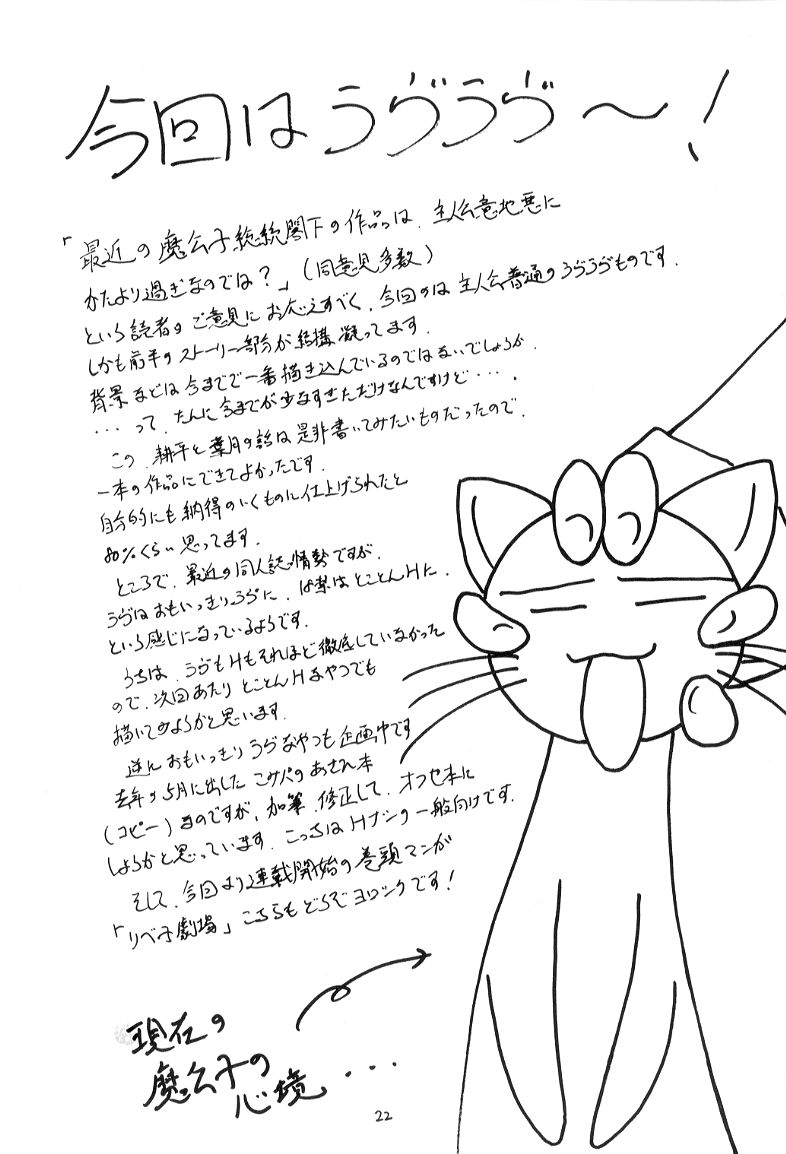 今回はうゔうゔ～!
「最近の魔公子総統閣下の作品は、主人公意地悪に
かたより過ぎなのでは?」(同意見多数)
という読者のご意見にお応えすべく、今回のは主人公普通のうゔうゔものです.
しかも前半のストーリー部分が結構凝ってます.
背景などは今までで一番描き込んでいるのではないでしょうか.
・・・って、たんに今までが少なすぎただけなんですけど・・・.
この、耕平と葉月の話は是非書いてみたいものだったので、
一本の作品にできてよかったです.
自分的にも納得のいくものに仕上げられたと
80%くらい思ってます.
ところで、最近の同人誌情勢ですが、
うゔはおもいっきりうゔに、はとことんHに、
という感じになっているようです.
うちは、うゔもHもそれほど徹底していなかった
ので、次回あたりとことんHなやつでも
描いてみようかと思います.
逆におもいっきりうゔなやつも企画中です
去年の5月に出したこみパのあさひ本
(コピー)なのですが、加筆、修正して、オフセ本に
しようかと思っています.こっちはHナシの一般向けです.
そして、今回より連載開始の巻頭マンガ
「リベ子劇場」こちらもどうぞヨロシクです!
現在の
魔公子の
心境・・・
22